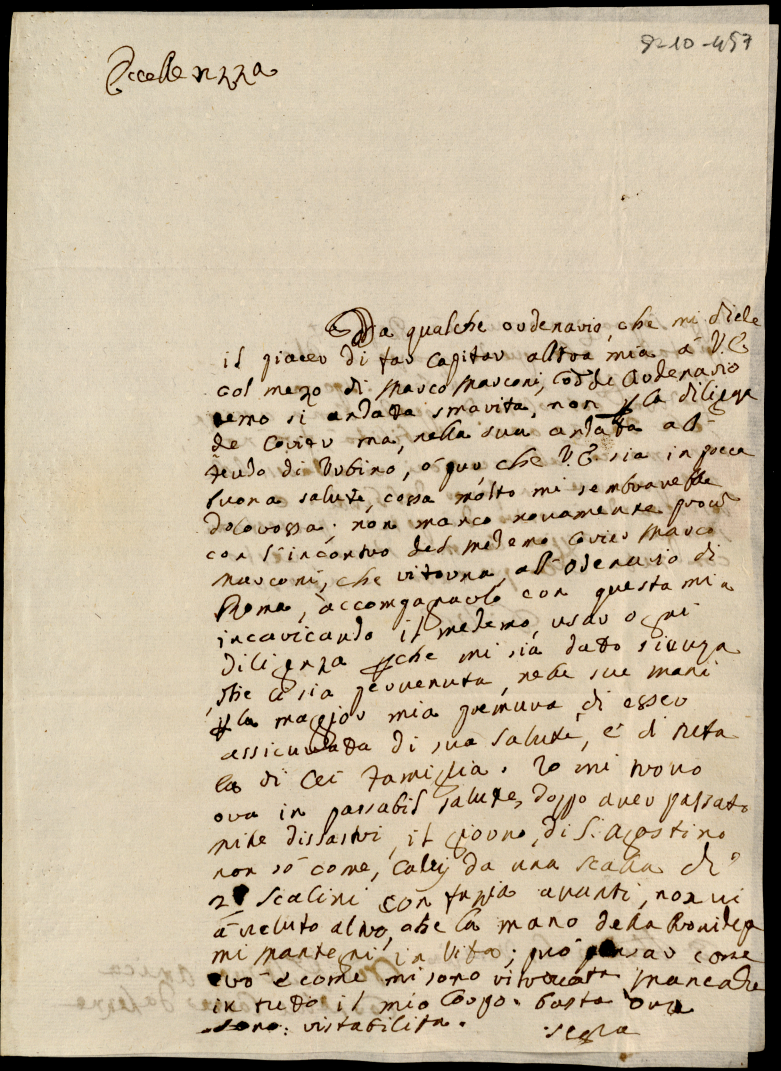 Eccellenzza
Da qualche ordenario, che mi diede
il piacer di far capitar altra mia à V.E.
col mezo di Marco Marconi, Ordenario
temo si andata smarita, non p la diligen
de Corier ma, nella sua andata all'
di Urbino, ò pur, che V.E. sia in pocca
buona salute, cossa molto mi sembrarebbe
dolorossa; non manco novamente
con l'incontro del medemo Corier Marco
Marconi, che ritorna, all'Odenario di
Roma, accompagnarlo con questa mia
incaricando il medemo, usar ogni
diligenza pche mi sia dato siguza
che le sia pervenuta, nelle sue mani
p la maggior mia premura di esser
assicurata di sua salute, e di tutta
la di Lei Famiglia. Io mi trovo
ora in passabil salute, doppo aver passato
mille dissastri, il giorno, di S. Agostino
non sò come, da una scalla di
Scalini con avanti, non vi
à veluto altro, che la mano della Providenza
mi mantenì in Vita; può pensar come
ero e come mi sono ritrovata
in tutto il mio Corpo. basta ora
sono: ristabilita.
segra